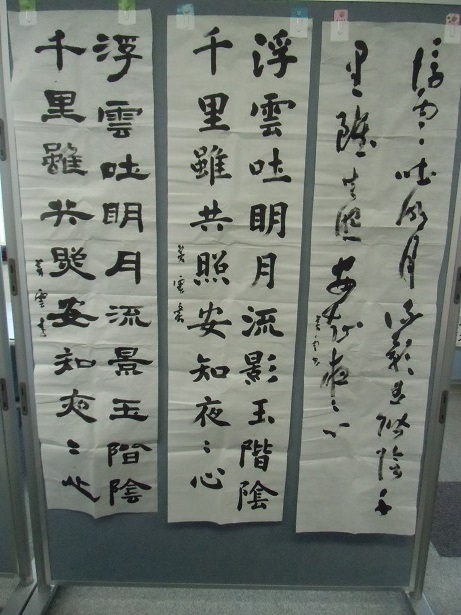 浮雲吐明月流影玉階陰千
里雖共照安知夜〻心
浮雲吐明月流影玉階陰
千里雖共照安知夜〻心
雲書
浮雲吐明月流景玉階陰
千里雖共照安知夜〻心
雲書